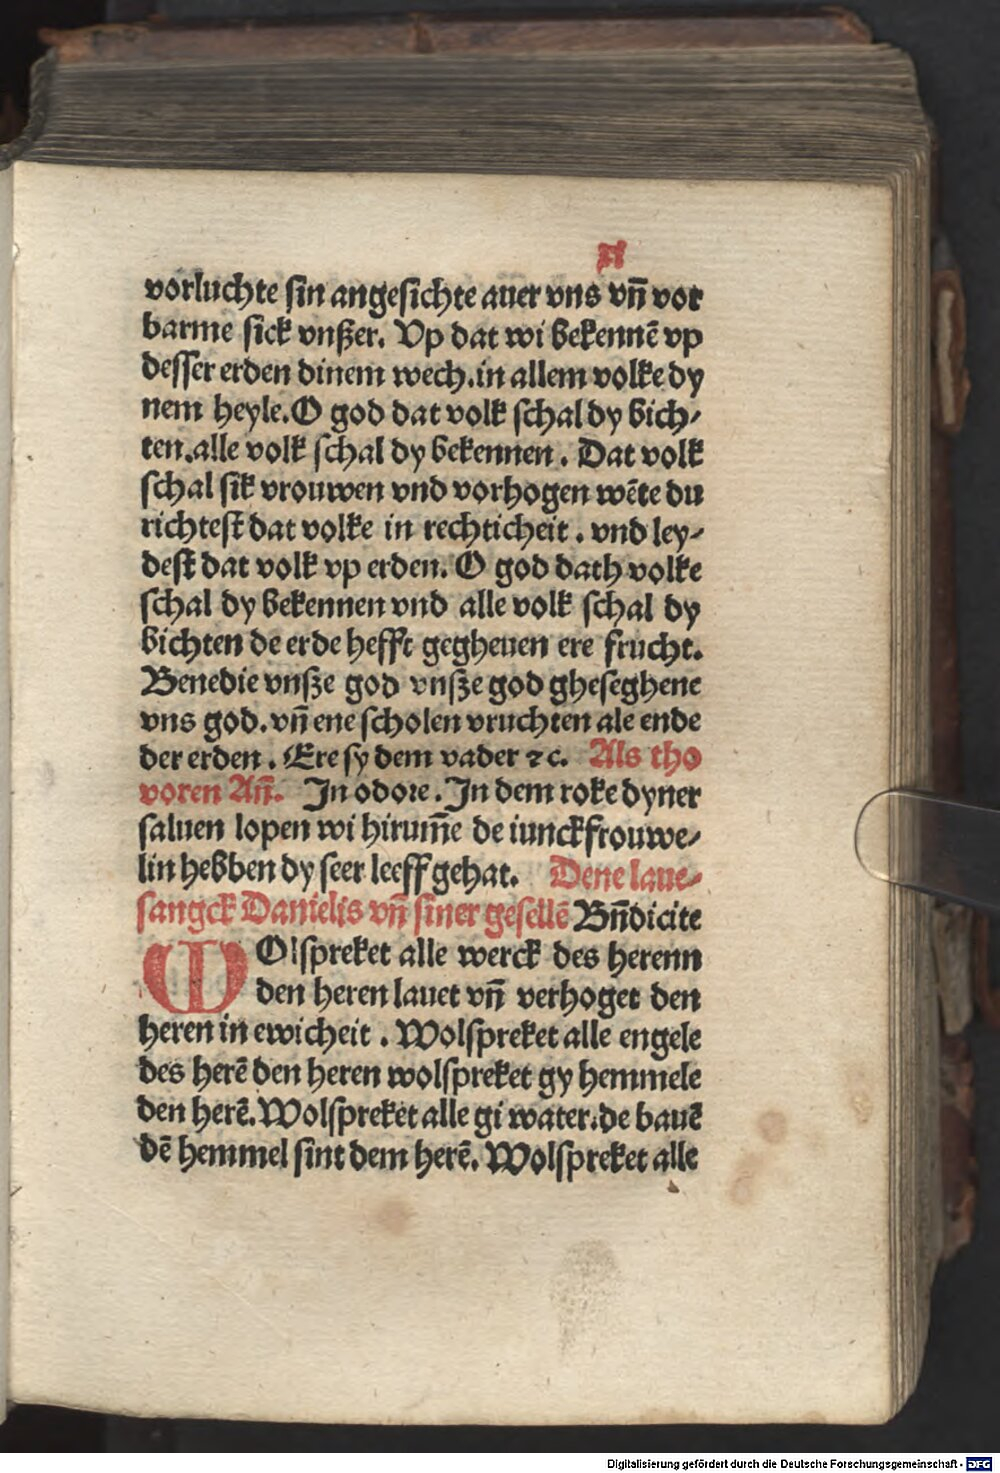 xi
vorluchte sin angesichte auer vns vn̄ vor
barme sick vnßer. Vp dat wi bekennē vp
desser erden dinem wech.in allem volke dy
nem heyle.O god dat volk schal dy bich-
ten.alle volk schal dy bekennen. Dat volk
schal sik vrouwen vnd vorhogen wēte du
richtest dat volke in rechticheit. vnd ley-
dest dat volk vp erden. O god dath volke
schal dy bekennen vnd alle volk schal dy
bichten de erde hefft gegheuen ere frucht.
Benedie vnsze god vnsze god gheseghene
vns god.vn̄ ene scholen vruchten ale ende
der erden. Ere sy dem vader ⁊c. Als tho
voren An̄. In odore. In dem roke dyner
saluen lopen wi hirum̄e de iunckfrouwe-
lin hebben dy seer leeff gehat. Dene laue-
sangck Danielis vn̄ siner gesellē Bn̄dicite
WOlspreket alle werck des herenn
den heren lauet vn̄ verhoget den
heren in ewicheit. Wolspreket alle engele
des herē den heren wolspreket gy hemmele
den herē.Wolspreket alle gi water.de bauē
dē hemmel sint dem herē. Wolspreket alle
Digitalisierung gefördert durch die Deutsche Forschungsgemeinschaft - DFG